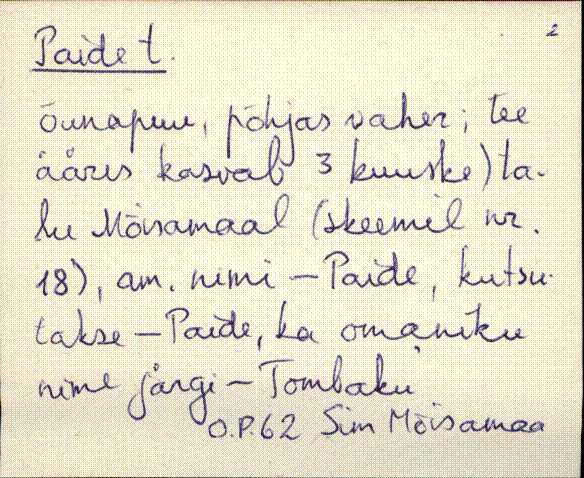 2
Paide t.
õunapuu, põhjas vaher; tee
ääres kasvab 3 kuuske) ta-
lu Mõisamaal (skeemil nr.
18), am. nimi – Paide, kutsu-
takse – Paide, ka omaniku
nime järgi – Tombaku
O.P.62 Sim Mõisamaa